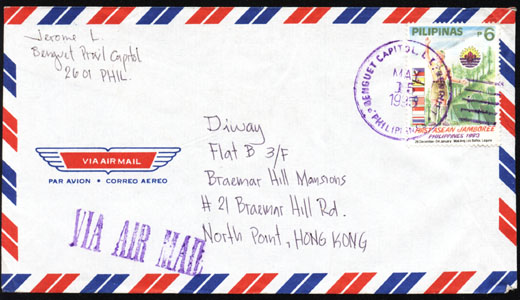 Jerome L.
Benguet Provil Capitol
2601 PHIL.
PILIPINAS
P6
BENGUET CAPITOL, L.
MAY
15
PHILIPPINES
1ST ASEAN JAMBOREE
PHILIPPINES 1993
VIA AIR MAIL
PAR AVION • CORREO AEREO
VIA AIR MAIL
Diway
Flat B 3/F
Braemar Hill Mansions
# 21 Braemar Hill Rd.
North Point, HONG KONG